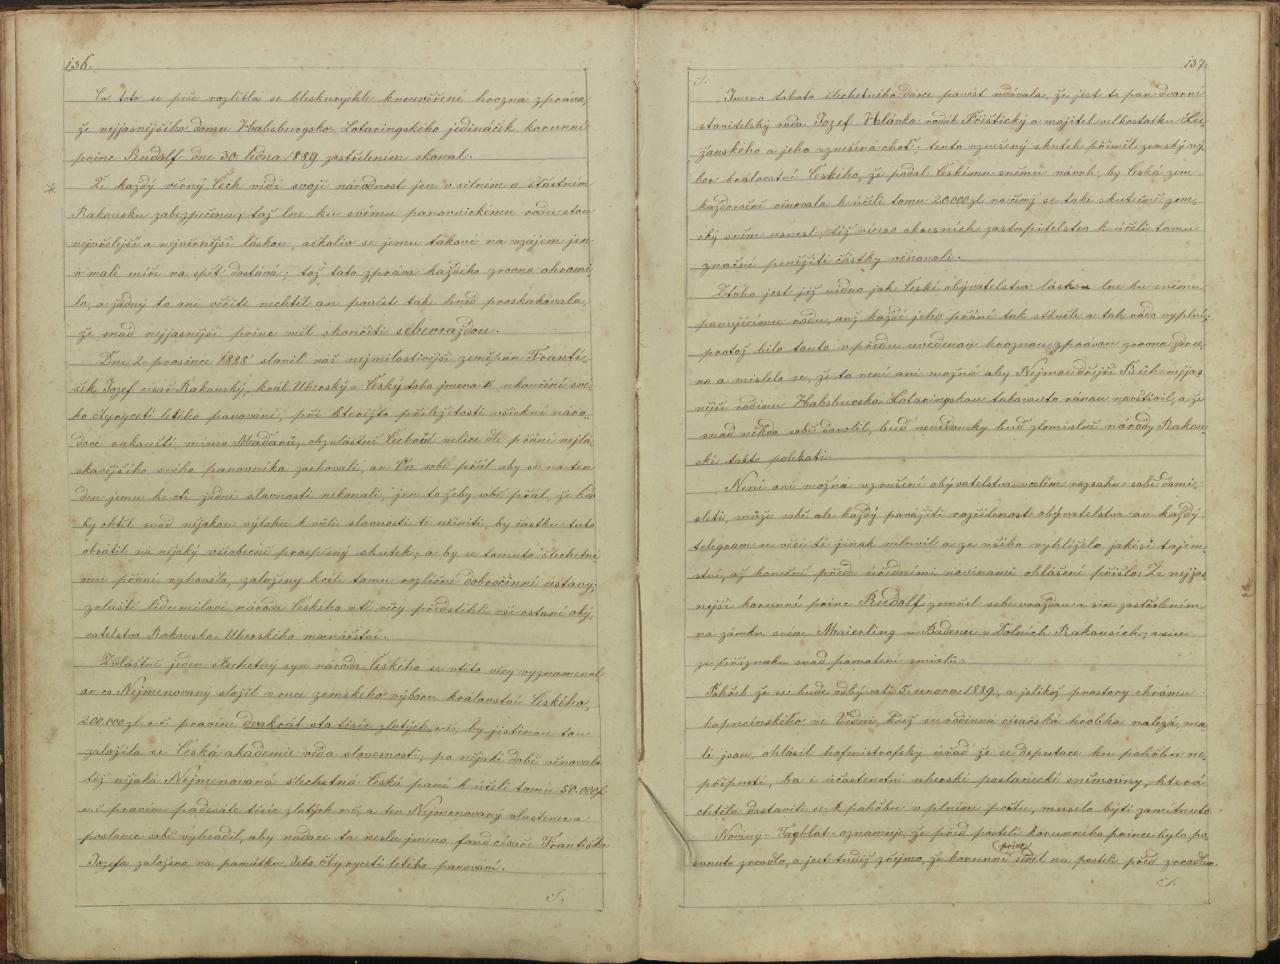 136.
Co toto se píše rozlítla se bleskurychle kneuvěření hrozná zpráva,
že nejjasnějšího domu Habsburgsko-Lotaringského jedináček korunní
princ Rudolf dne 30. ledna 1889 zastřelením skonal.
Že každý věrný Čech vidí svoji národnost jen v silném a šťastném
Rakousku zabezpečenu, též lne ku svému panovnickému rodu stou
nejvřelejší a nejvěrnější láskou, ačkoliv se jemu takové na vzájem jen
v malé míře na spět dostává; tož tato zpráva každého zrovna ohromi-
la, a žádný to ani věřiti nechtěl an pověst take hned proskakovala,
že snad nejjasnější princ měl skončiti sebevraždou.
Dne 2. prosince 1888 slavil náš nejmilostivější zeměpán Franti-
šek Jozef císař Rakouský, král Uherský a Český toho jmena I. ukončení své-
ho čtyryceti letého panování, při kteréžto přísležitosti všickni náro-
dové rakouští, mimo Maďarů, obzvláštně Čechové velice dle přání nejlá-
skavějšího svého panovníka zachovali, an On sobě přál aby se na ten
den jemu ke cti žádné slavnosti nekonali, jen to žeby sobě přál, že kdo
by chtěl snad nějakou výlohu k vůli slavnosti té učiniti, by částku tuto
obrátil na nějaký všeobecně prospěšný skutek; a by se tomuto šlechetné-
mu přání vyhovělo, založeny kcíli tomu rozličné dobročinné ústavy;
zvláští lidumilové národa Českého vté věcy předstihli vše ostatní oby-
vatelstvo Rakousko-Uherského mocnářství.
Zvláštní jeden šlechetný syn národa Českého se vtéto věcy vyznamenal
an co Nejmenovaný složil v ruce zemského výboru království Českého,
200.000 zl r.č. pravím dvakrát sto tisíc zlatých r.č; by jistinou tou
založila se Česká akademie věda slovesnosti; po nějaké době věnovala
též nějaká Nejmenovaná šlechetná Česká paní k účeli tomu 50.000 zl
r.č. pravím padesáte tisíc zlatých r.č, a ten Nejmenovaný vlastenec a
poslanec sobě vyhradil, aby nadace ta nesla jmeno fond císaře Františka
Jozefa založeno na památku Jeho čtyryceti letého panování.
./.
137.
./.
Jmeno tohoto šlechetného dárce pověst udávala, že jest to pan dvorní
stavitelský rada Jozef Hlávka rodák Přeštický a majitel velkostatku Lu-
žanského a jeho vznešená choť; tento vznešený skutek přiměle zemský vý-
bor království Českého, že podal Českému sněmu návrh, by Česká zem
každoročně věnovala k účeli tomu 20.000 zl načež se take skutečně zem-
ský sněm usnesl; též vícero okresních zastupitelstva k účeli tomu
značné peněžité částky věnovali.
Ztoho jest již vidno jak České obyvatelstvo láskou lne ku svému
panujícímu rodu, anž každé jeho přání tak skvěle a tak rádo vyplní;
protož bilo touto vpředu uvedenou hroznou zprávou zrovna zdrce-
no a mislelo se, že to není ani možná aby Nejmoudřejší Bůh nejjas-
nější rodinu Habsbursko-Lotaringskou takovouto ránou navštívil, a že
snad někdo sobě dovolil, buď nevědomky buď zlomislně národy Rakou-
ské takto polekati.
Není ani možná vzrušení obyvatelstva vcelém rozsahu sobě domi-
sleti, může sobě ale každý považiti rozčilenost obyvatelstva an každý
telegram o věci té jinak mluvil a ze všeho vyhlíželo jakési tajem-
ství, až konečně před úředními novinami ohlášení přišlo: Že nejjas-
nější korunní princ Rudolf zemřel sebevraždou a sice zastřelením
na zámku svém Maierling u Badenu v Dolních Rakousích; a sice
ze příznaku snad pomatení smislů.
Pohřeb že se bude odbývati 5. února 1889, a jelikož prostory chrámu
kapucínského ve Vídni, kdež se rodinná císařská hrobka nalezá, ma-
lé jsou, ohlásil hofmistrofský úřad že se deputace ku pohřbu ne-
připustí, ba i účastenství uherské poslanecké sněmovny, která
chtěla dostaviti se k pohřbu v plném počtu, muselo býti zamítnuto.
Noviny-Tagblat- oznamuje, že před postelí korunního prince bylo, po-
sunuto zrcadlo, a jest tudíž zřejmo, že korunní princ seděl na posteli před zrcadlem
./.